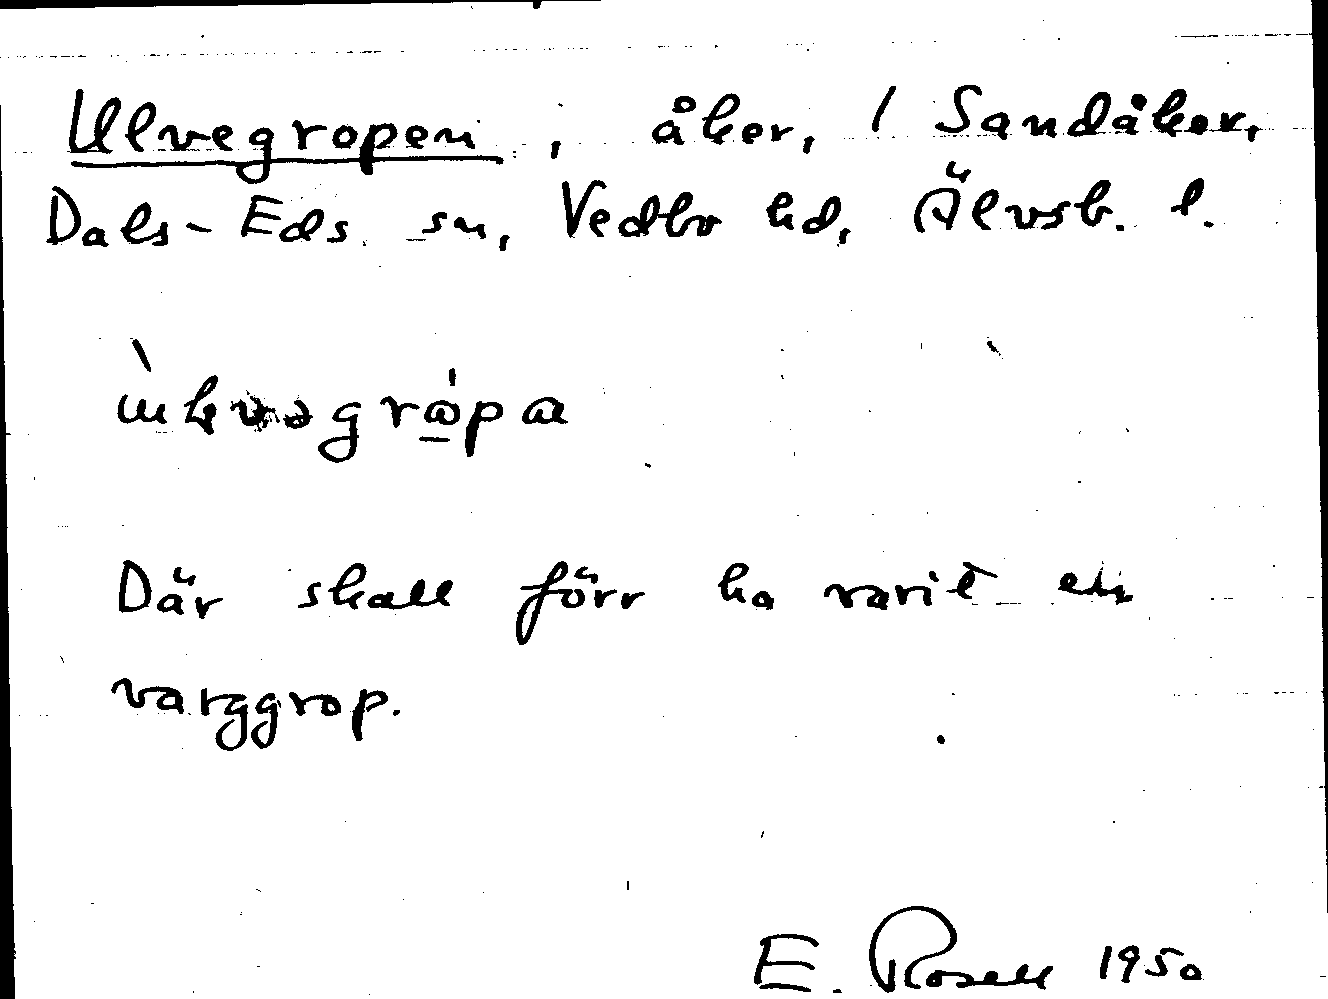 Ulvegropen, åker, / Sandåker,
Dals-Eds sn, Vedbo hd, Älvsb. l.
Där skall förr ha varit en
varggrop.
E. Rosell 1950